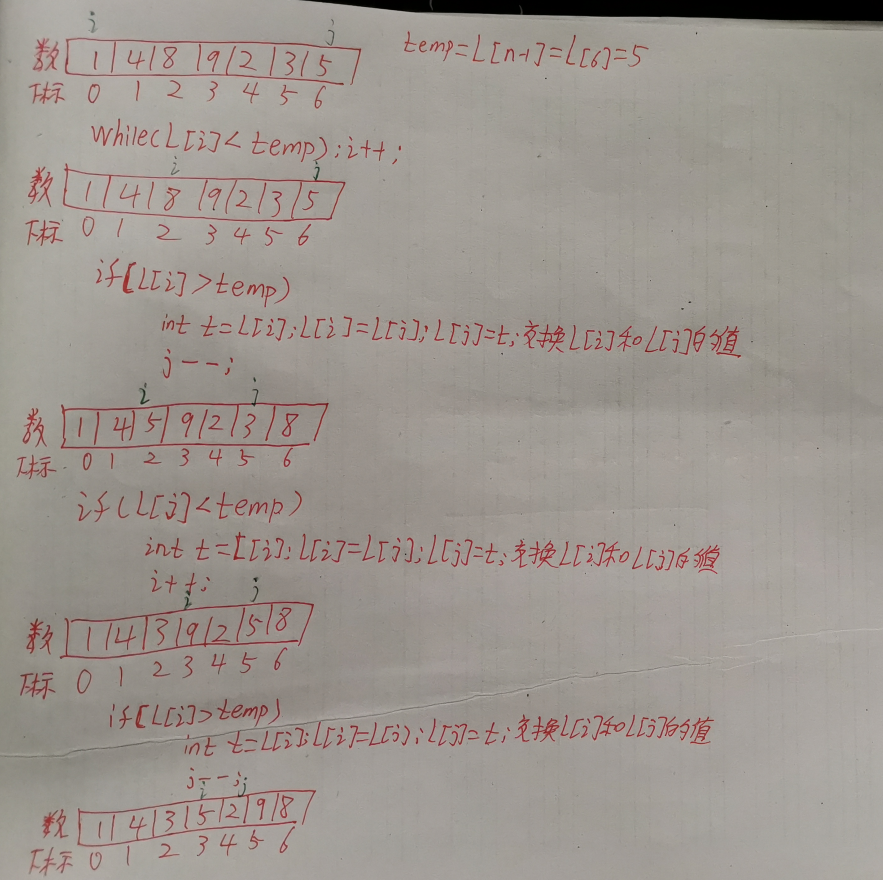 i j
数 1 4 8 9 2 3 5 temp=L[n-1]=L[6]=5
下标 0 1 2 3 4 5 6
while(L[i]< temp);i++;
i j
数 1 4 8 9 2 3 5
下标 0 1 2 3 4 5 6
if[L[i]>temp)
int t=L[i];L[i]=L[j];L[j]=t;交换L[i]和L[j]的值
j--;
i j
数 1 4 5 9 2 3 8
下标 0 1 2 3 4 5 6
if(L[j]<temp)
int t=L[i];L[i]=L[j];L[j]=t;交换L[i]和L[j]的值
i++;
i j
数 1 4 3 9 2 5 8
下标 0 1 2 3 4 5 6
if[L[i]>temp)
int t=L[i];L[i]=L[j);L[j]=t;交换L[i]和L[j]的值
j--;
i j
数 1 4 3 5 2 9 8
下标 0 1 2 3 4 5 6